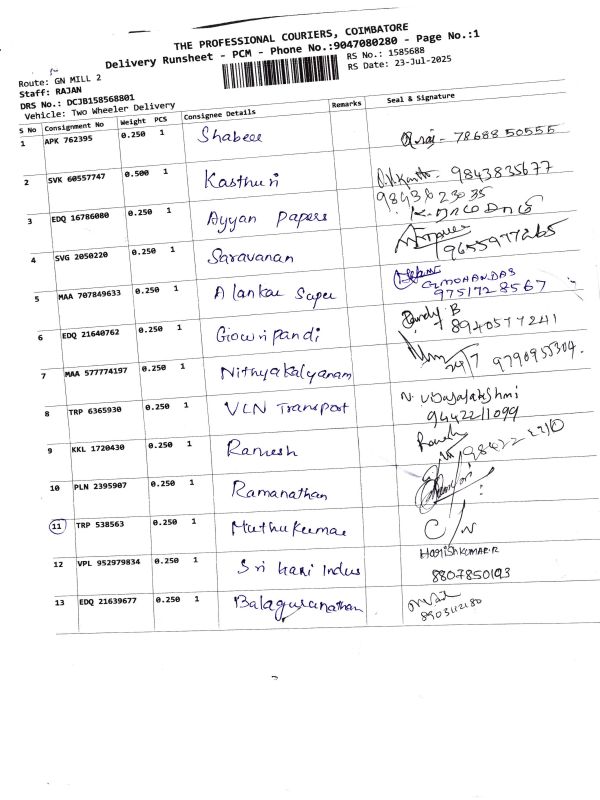 THE PROFESSIONAL COURIERS, COIMBATORE
Delivery Runsheet - PCM - Phone No.:9047080280 - Page No.:1
Route: GN MILL 2
RS No.: 1585688
Staff: RAJAN
RS Date: 23-Jul-2025
DRS No.: DCJB158568801
Vehicle: Two Wheeler Delivery
S No Consignment No Weight PCS Consignee Details Remarks Seal & Signature
1 APK 762395 0.250 1 Shabeee - 78688 50555
2 SVK 60557747 0.500 1 Kasthuri 9843835677
3 EDQ 16786080 0.250 1 Ayyan Papers
4 SVG 2050220 0.250 1 Saravanan 9655977265
5 MAA 707849633 0.250 1 Alankar Super C.MOHANDAS
9751728567
6 EDQ 21640762 0.250 1 Gowri pandi 8940577241
7 MAA 577774197 0.250 1 Nithyakalyanam 24/7 9790955304.
8 TRP 6365930 0.250 1 VLN Transport N. Vijayalakshmi
9442211099
9 KKL 1720430 0.250 1 Ramesh
10 PLN 2395907 0.250 1 Ramanathan
11 TRP 538563 0.250 1 Muthukumar C/N
12 VPL 952979834 0.250 1 Sri hari Indus HARISHKUMAR.R
8807850193
13 EDQ 21639677 0.250 1 Balagurunathan